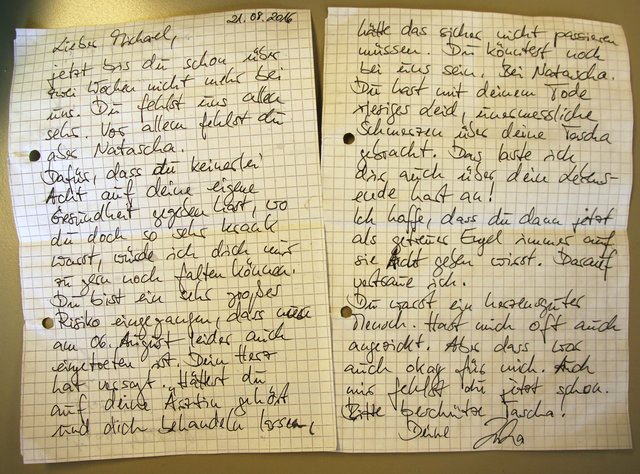 21.08.2016
Lieber Michael,
jetzt bis du schon über
zwei Wochen nicht mehr bei
uns. Du fehlst uns allen
sehr. Vor allem fehlst du
aber Natascha.
Dafür, dass du keinerlei
Acht auf deine eigene
Gesundheit gegeben hast, wo
du doch so sehr krank
warst, würde ich dich nur
zu gern noch falten können.
Du bist ein sehr großes
Risiko eingegangen, dass nun
am 06. August leider auch
eingetreten ist. Dein Herz
hat versagt. Hättest du
auf deine Ärztin gehört
und dich behandeln lassen,
hätte das sicher nicht passieren
müssen. Du könntest noch
bei uns sein. Bei Natascha.
Du hast mit deinem Tode
riesiges Leid, unermessliche
Schmerzen über deine Tascha
gebracht. Das laste ich
dir auch über dein Lebens-
ende hart an!
Ich hoffe, dass du dann jetzt
als getreuer Engel immer auf
sie Acht geben wirst. Darauf
vertraue ich.
Du warst ein herzensguter
Mensch. Hast mich oft auch
angezickt. Aber dass war
auch okay für mich. Auch
mir fehlst du jetzt schon.
Bitte beschütze Tascha!
Deine